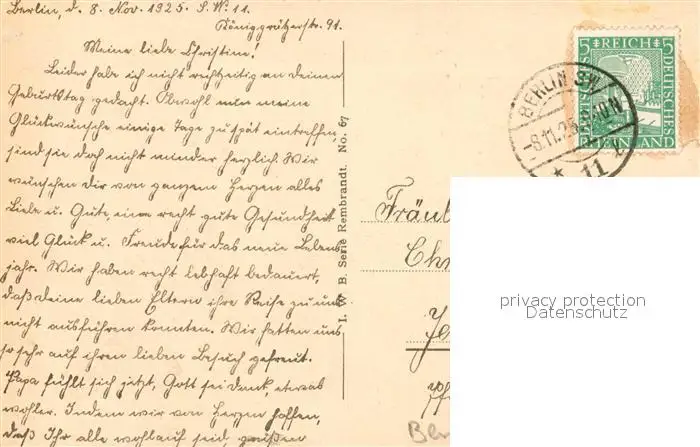 Berlin, d. 8. Nov. 1925. S. W. 11.
Königgrätzerstr. 91.
Meine liebe Christine!
Leider habe ich nicht rechtzeitig an deinen
Geburtstag gedacht. Obwohl nun meine
Glückwünsche einige Tage zu spät eintreffen,
sind sie doch nicht minder herzlich. Wir
wünschen dir von ganzem Herzen alles
Liebe u. Gute, eine recht gute Gesundheit
viel Glück u. Freude für das neue Lebens
jahr. Wir haben recht lebhaft bedauert,
daß deine lieben Eltern ihre Reise zu uns
nicht ausführen konnten. Wir hatten uns
so sehr auf ihren lieben Besuch gefreut.
Papa fühlt sich jetzt, Gott sei dank, etwas
wohler. Indem wir von Herzen hoffen,
daß Ihr alle wohlauf seid, grüßen
I. W. B. Serie Rembrandt. No. 67
5 REICH 5
DEUTSCHES
RHEINLAND
BERLIN SW
-8.11.25.
* 11
Fräul
Chr
privacy protection
Datenschutz